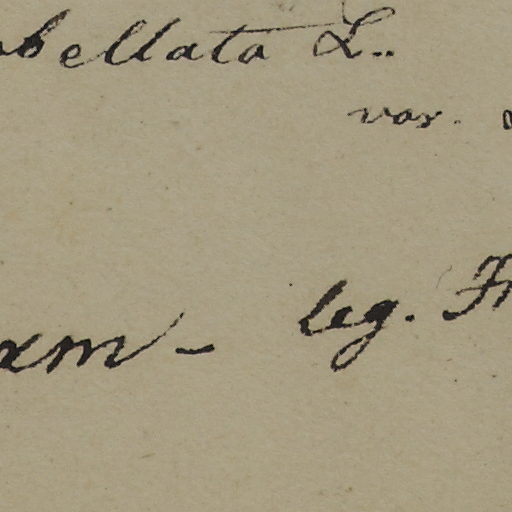 bellata L..
var.
xm - leg. Fr